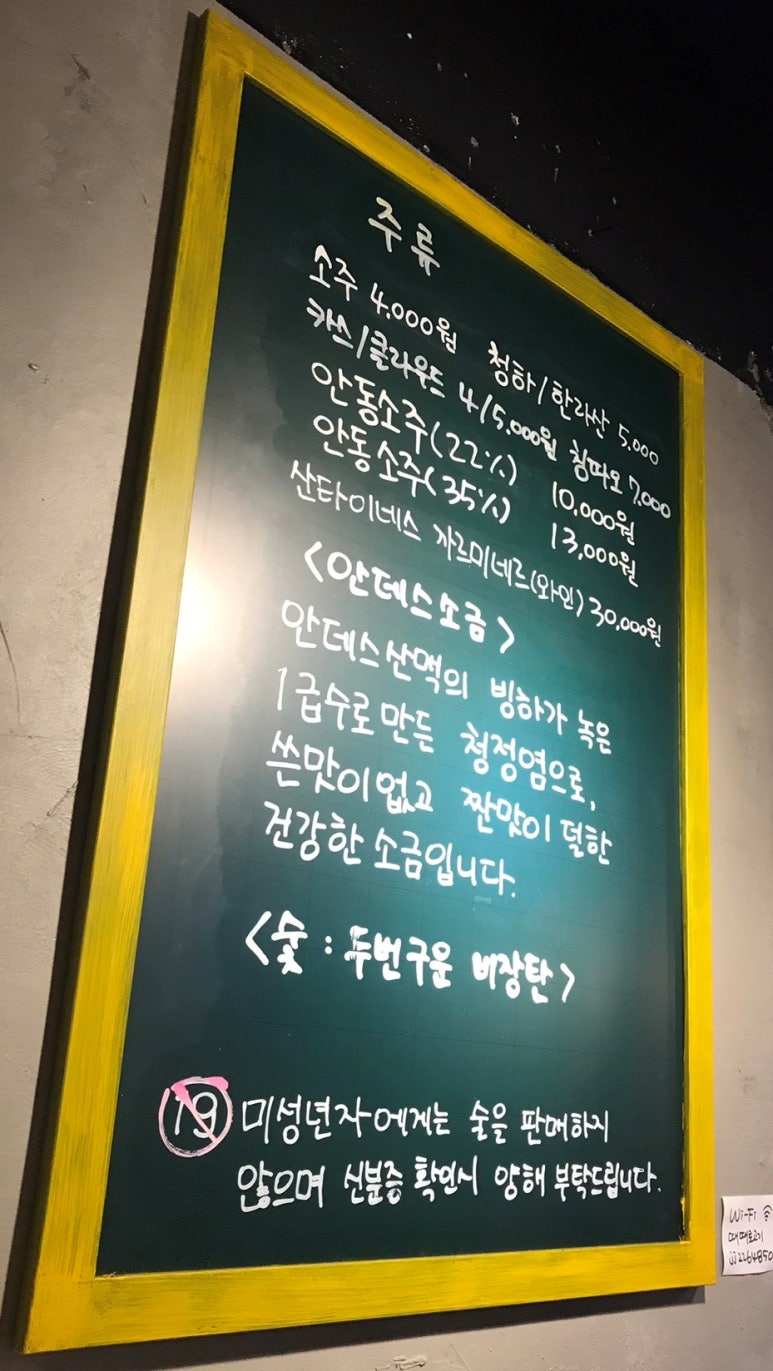 주류
소주 4.000원 청하/한라산 5.000
카쓰/클라우드 4/5.000원 칭따오 7.000
안동소주(22%) 10.000원
안동소주(35%) 13,000원
산타이네스 까르미네르(와인) 30.000원
<안데스소금>
안데스산맥의 빙하가 녹은
1급수로 만든 청정염으로,
쓴맛이없고 짠맛이 덜한
건강한 소금입니다.
<숯 : 두번구운 비장탄>
19 미성년자에게는 술을 판매하지
않으며 신분증 확인시 양해 부탁드립니다.
Wi-Fi